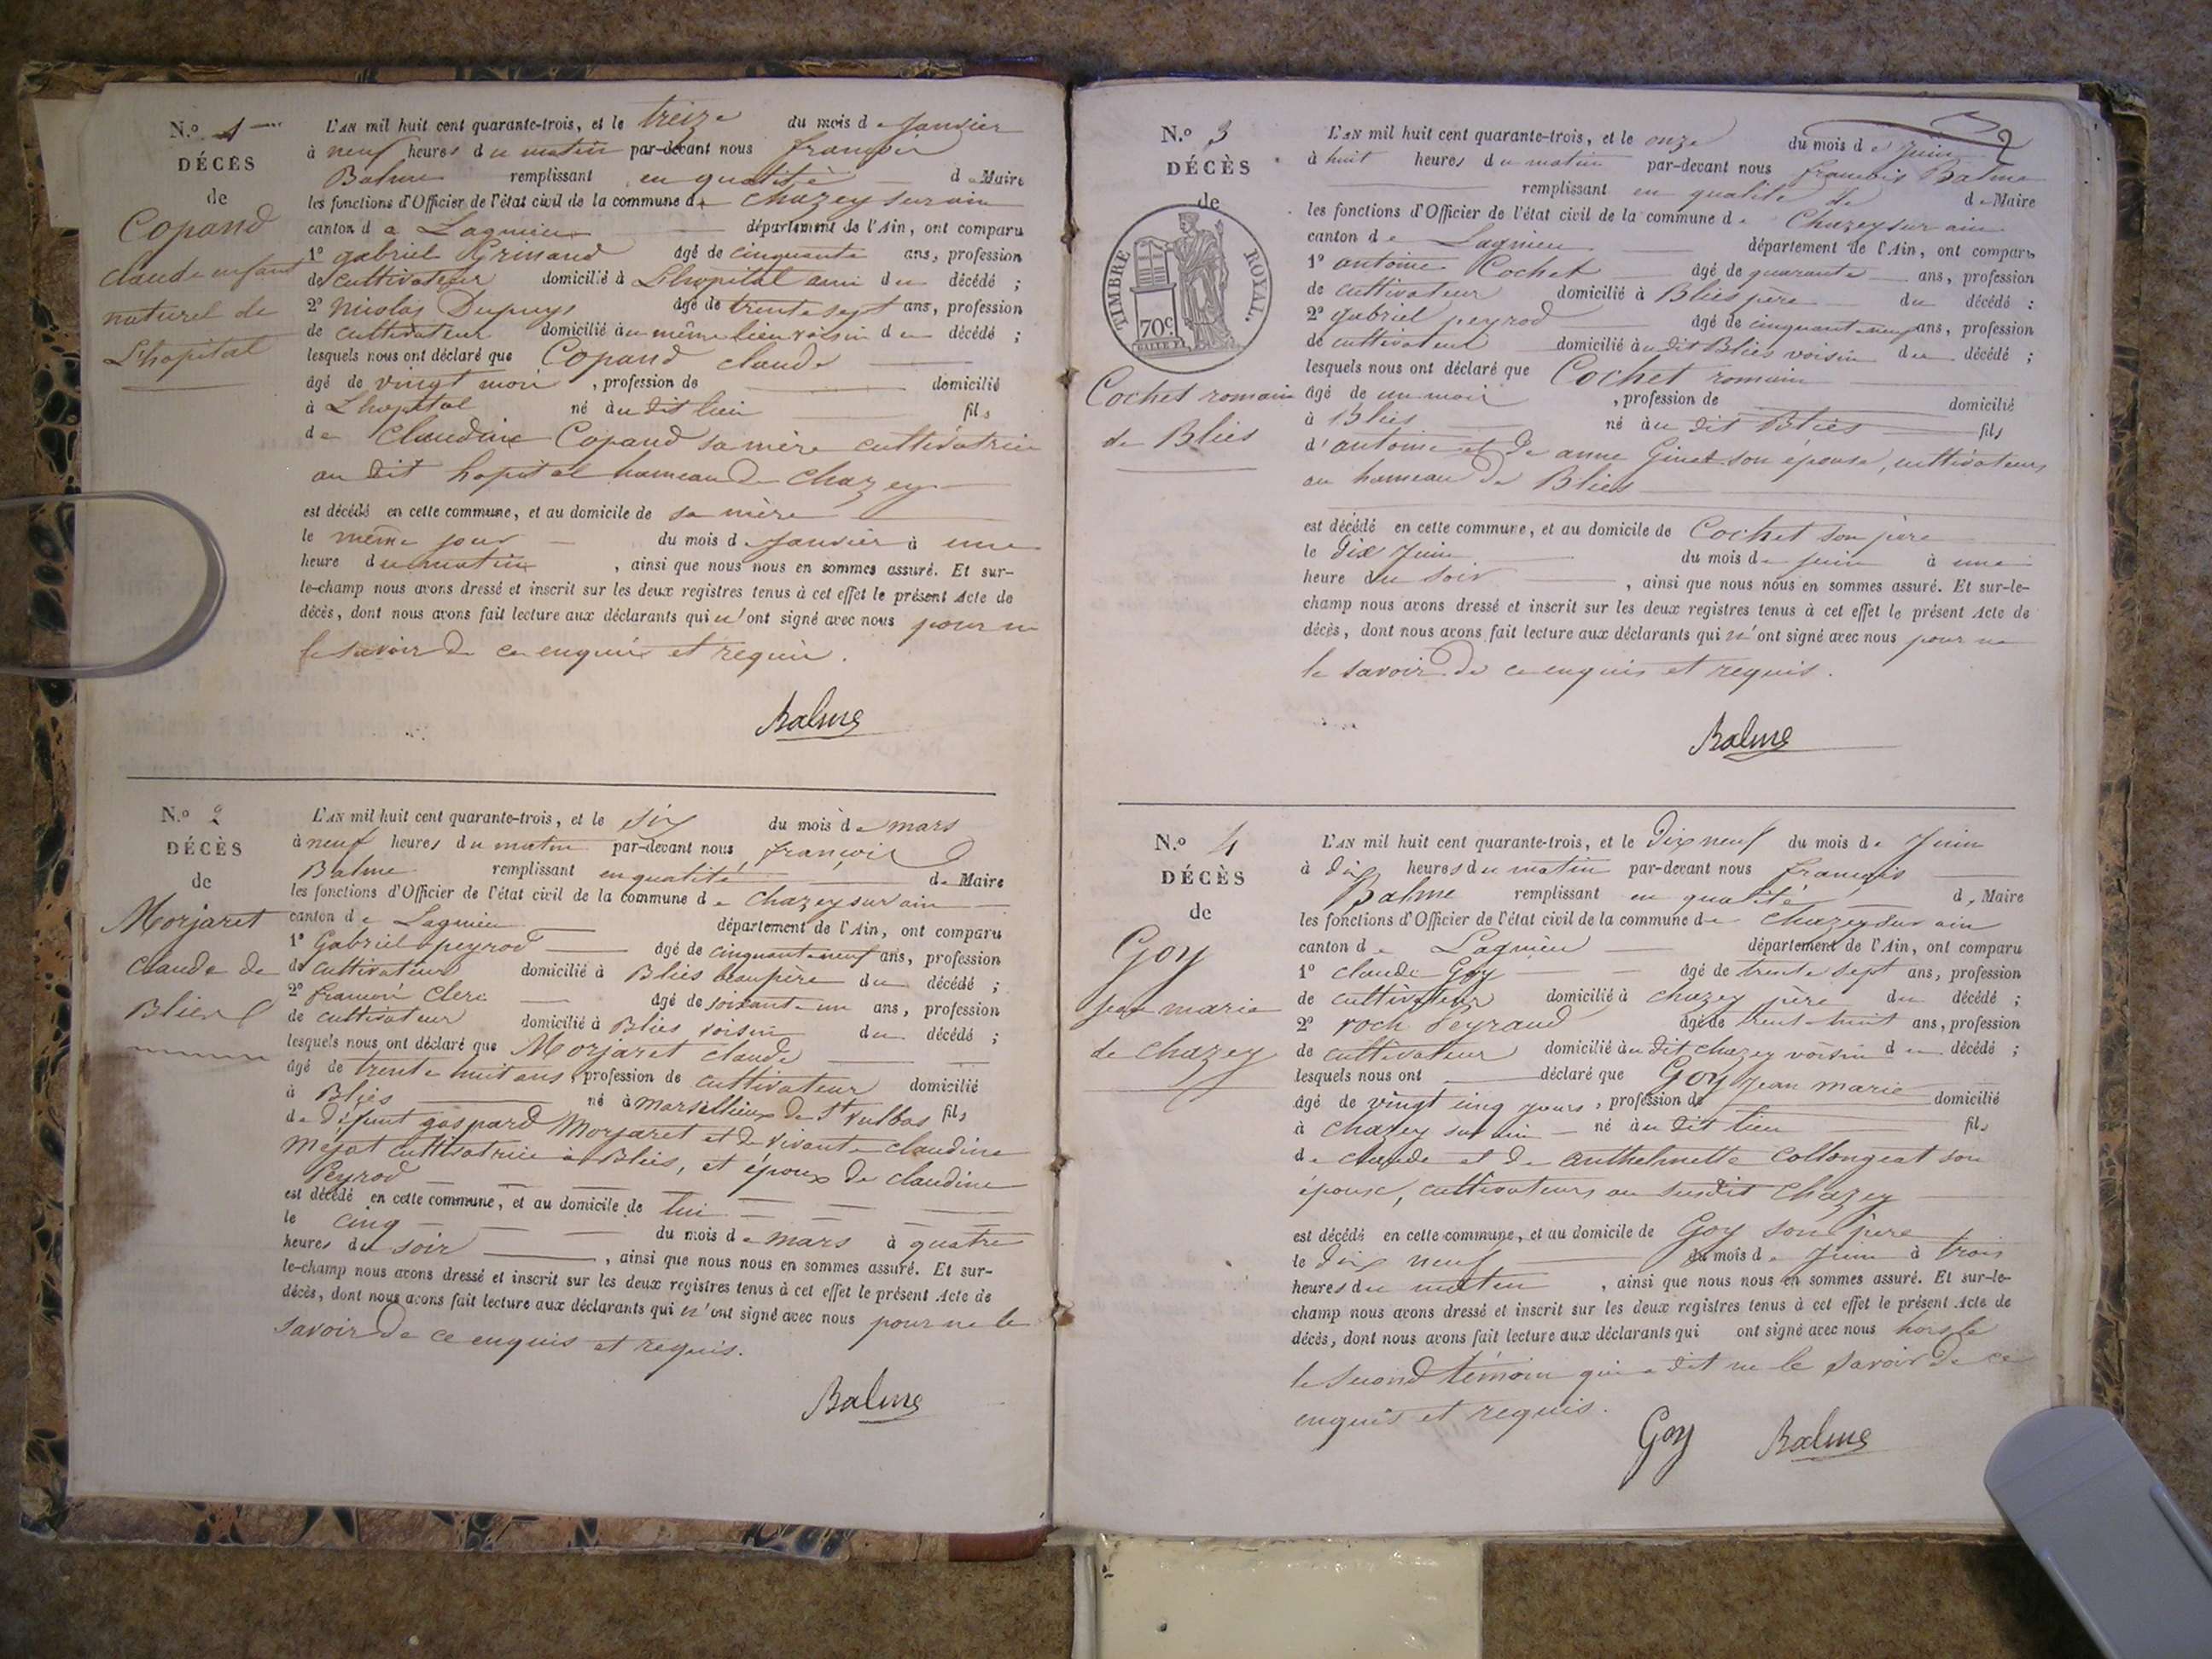 N.o 1
DÉCÈS
de
Copand
claude enfant
naturel de
L'hopital
L'AN mil huit cent quarante-trois, et le treize du mois de Janvier
à neuf heures du matin par-devant nous françois
Balme remplissant en qualité de Maire
les fonctions d'Officier de l'état civil de la commune de Chazey sur ain
canton de Lagnieu département de l'Ain, ont comparu
1o gabriel Grinand âgé de cinquante ans, profession
de cultivateur domicilié à L'hopital ami du décédé ;
2o Nicolas Dupuys âgé de trente sept ans, profession
de cultivateur domicilié au même lieu voisin du décédé ;
lesquels nous ont déclaré que Copand claude
âgé de vingt mois, profession de domicilié
à L'hopital né au dit lieu fils
de Claudine Copand sa mère cultivatrice
au dit hopital hameau de Chazey
est décédé en cette commune, et au domicile de sa mère
le même jour du mois de Janvier à une
heure du matin, ainsi que nous nous en sommes assuré. Et sur-
le-champ nous avons dressé et inscrit sur les deux registres tenus à cet effet le présent Acte de
décès, dont nous avons fait lecture aux déclarants qui n'ont signé avec nous pour ne
le savoir de ce enquis et requis.
Balme
N.o 2
DÉCÈS
de
Morjaret
claude de
Blies
L'AN mil huit cent quarante-trois, et le six du mois de mars
à neuf heures du matin par-devant nous françois
Balme remplissant en qualité de Maire
les fonctions d'Officier de l'état civil de la commune de Chazey sur ain
canton de Lagnieu département de l'Ain, ont comparu
1o Gabriel peyrod âgé de cinquante neuf ans, profession
de cultivateur domicilié à Blies beaupère du décédé ;
2o françois Clerc âgé de soixante un ans, profession
de cultivateur domicilié à Blies voisin du décédé ;
lesquels nous ont déclaré que Morjaret claude
âgé de trente huit ans, profession de cultivateur domicilié
à Blies né à marsellieux de St Vulbas fils
de défunt gaspard Morjaret et de vivante claudine
Mejat cultivatrice à Blies, et époux de claudine
Peyrod
est décédé en cette commune, et au domicile de lui
le cinq du mois de mars à quatre
heures du soir, ainsi que nous nous en sommes assuré. Et sur-
le-champ nous avons dressé et inscrit sur les deux registres tenus à cet effet le présent Acte de
décès, dont nous avons fait lecture aux déclarants qui n'ont signé avec nous pour ne le
savoir de ce enquis et requis.
Balme
2
N.o 3
DÉCÈS
de
TIMBRE ROYAL.
70c
Cochet romain
de Blies
L'AN mil huit cent quarante-trois, et le onze du mois de Juin
à huit heures du matin par-devant nous françois Balme
remplissant en qualité de de Maire
les fonctions d'Officier de l'état civil de la commune de Chazey sur ain
canton de Lagnieu département de l'Ain, ont comparu
1o antoine Cochet âgé de quarante ans, profession
de cultivateur domicilié à Blies père du décédé ;
2o gabriel peyrod âgé de cinquante neuf ans, profession
de cultivateur domicilié au dit Blies voisin du décédé ;
lesquels nous ont déclaré que Cochet romain
âgé de un mois, profession de domicilié
à Blies né au dit Blies fils
d'antoine et de anne Ginet son épouse, cultivateurs
au hameau de Blies
est décédé en cette commune, et au domicile de Cochet son père
le dix Juin du mois de juin à une
heure du soir, ainsi que nous nous en sommes assuré. Et sur-le-
champ nous avons dressé et inscrit sur les deux registres tenus à cet effet le présent Acte de
décès, dont nous avons fait lecture aux déclarants qui n'ont signé avec nous pour ne
le savoir de ce enquis et requis.
Balme
N.o 4
DÉCÈS
de
Goy
jean marie
de Chazey
L'AN mil huit cent quarante-trois, et le Dix neuf du mois de Juin
à dix heures du matin par-devant nous françois
Balme remplissant en qualité de Maire
les fonctions d'Officier de l'état civil de la commune de Chazey sur ain
canton de Lagnieu département de l'Ain, ont comparu
1o claude Goy âgé de trente sept ans, profession
de cultivateur domicilié à chazey père du décédé ;
2o roch Peyraud âgé de trente huit ans, profession
de cultivateur domicilié au dit chazey voisin du décédé ;
lesquels nous ont déclaré que Goy Jean marie
âgé de vingt cinq jours, profession de domicilié
à Chazey sur ain né au dit lieu fils
de claude et de anthelmette Collongeat son
épouse, cultivateurs au susdit Chazey
est décédé en cette commune, et au domicile de Goy son père
le dix neuf du mois de Juin à trois
heures du matin, ainsi que nous nous en sommes assuré. Et sur-le-
champ nous avons dressé et inscrit sur les deux registres tenus à cet effet le présent Acte de
décès, dont nous avons fait lecture aux déclarants qui ont signé avec nous hors le
le second témoin qui a dit ne le savoir de ce
enquis et requis.
Goy Balme